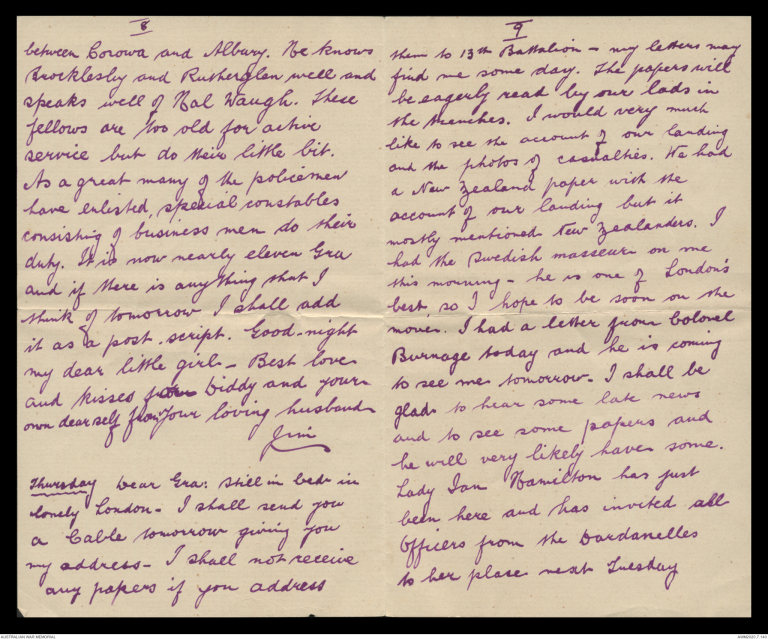 8
between Corowa and Albury. He knows
Brocklesby and Rutherglen well and
speaks well of Hal Waugh. These
fellows are too old for active
service but do their little bit.
As a great many of the policemen
have enlisted, special constables
consisting of business men do their
duty. It is now nearly eleven Gra
and if there is anything that I
think of tomorrow I shall add
it as a post-script. Good-night
my dear little girl - Best love
and kisses for Diddy and your
own dear self from your loving husband
Jim
Thursday Dear Gra: Still in bed in
lonely London - I shall send you
a Cable tomorrow giving you
my address - I shall not receive
any papers if you address
9
them to 13th Battalion - my letters may
find me some day. The papers will
be eagerly read by our lads in
the trenches. I would very much
like to see the account of our landing
and the photos of casualties. We had
a New Zealand paper with the
account of our landing but it
mostly mentioned New Zealanders. I
had the Swedish masseur on me
this morning - he is one of London's
best, so I hope to be soon on the
move. I had a letter from Colonel
Burnage today and he is coming
to see me tomorrow. I shall be
glad to hear some late news
and to see some papers and
he will very likely have some.
Lady Ian Hamilton has just
been here and has invited all
Officers from the Dardanelles
to her place next Tuesday
AUSTRALIAN WAR MEMORIAL
AWM2020.7.140